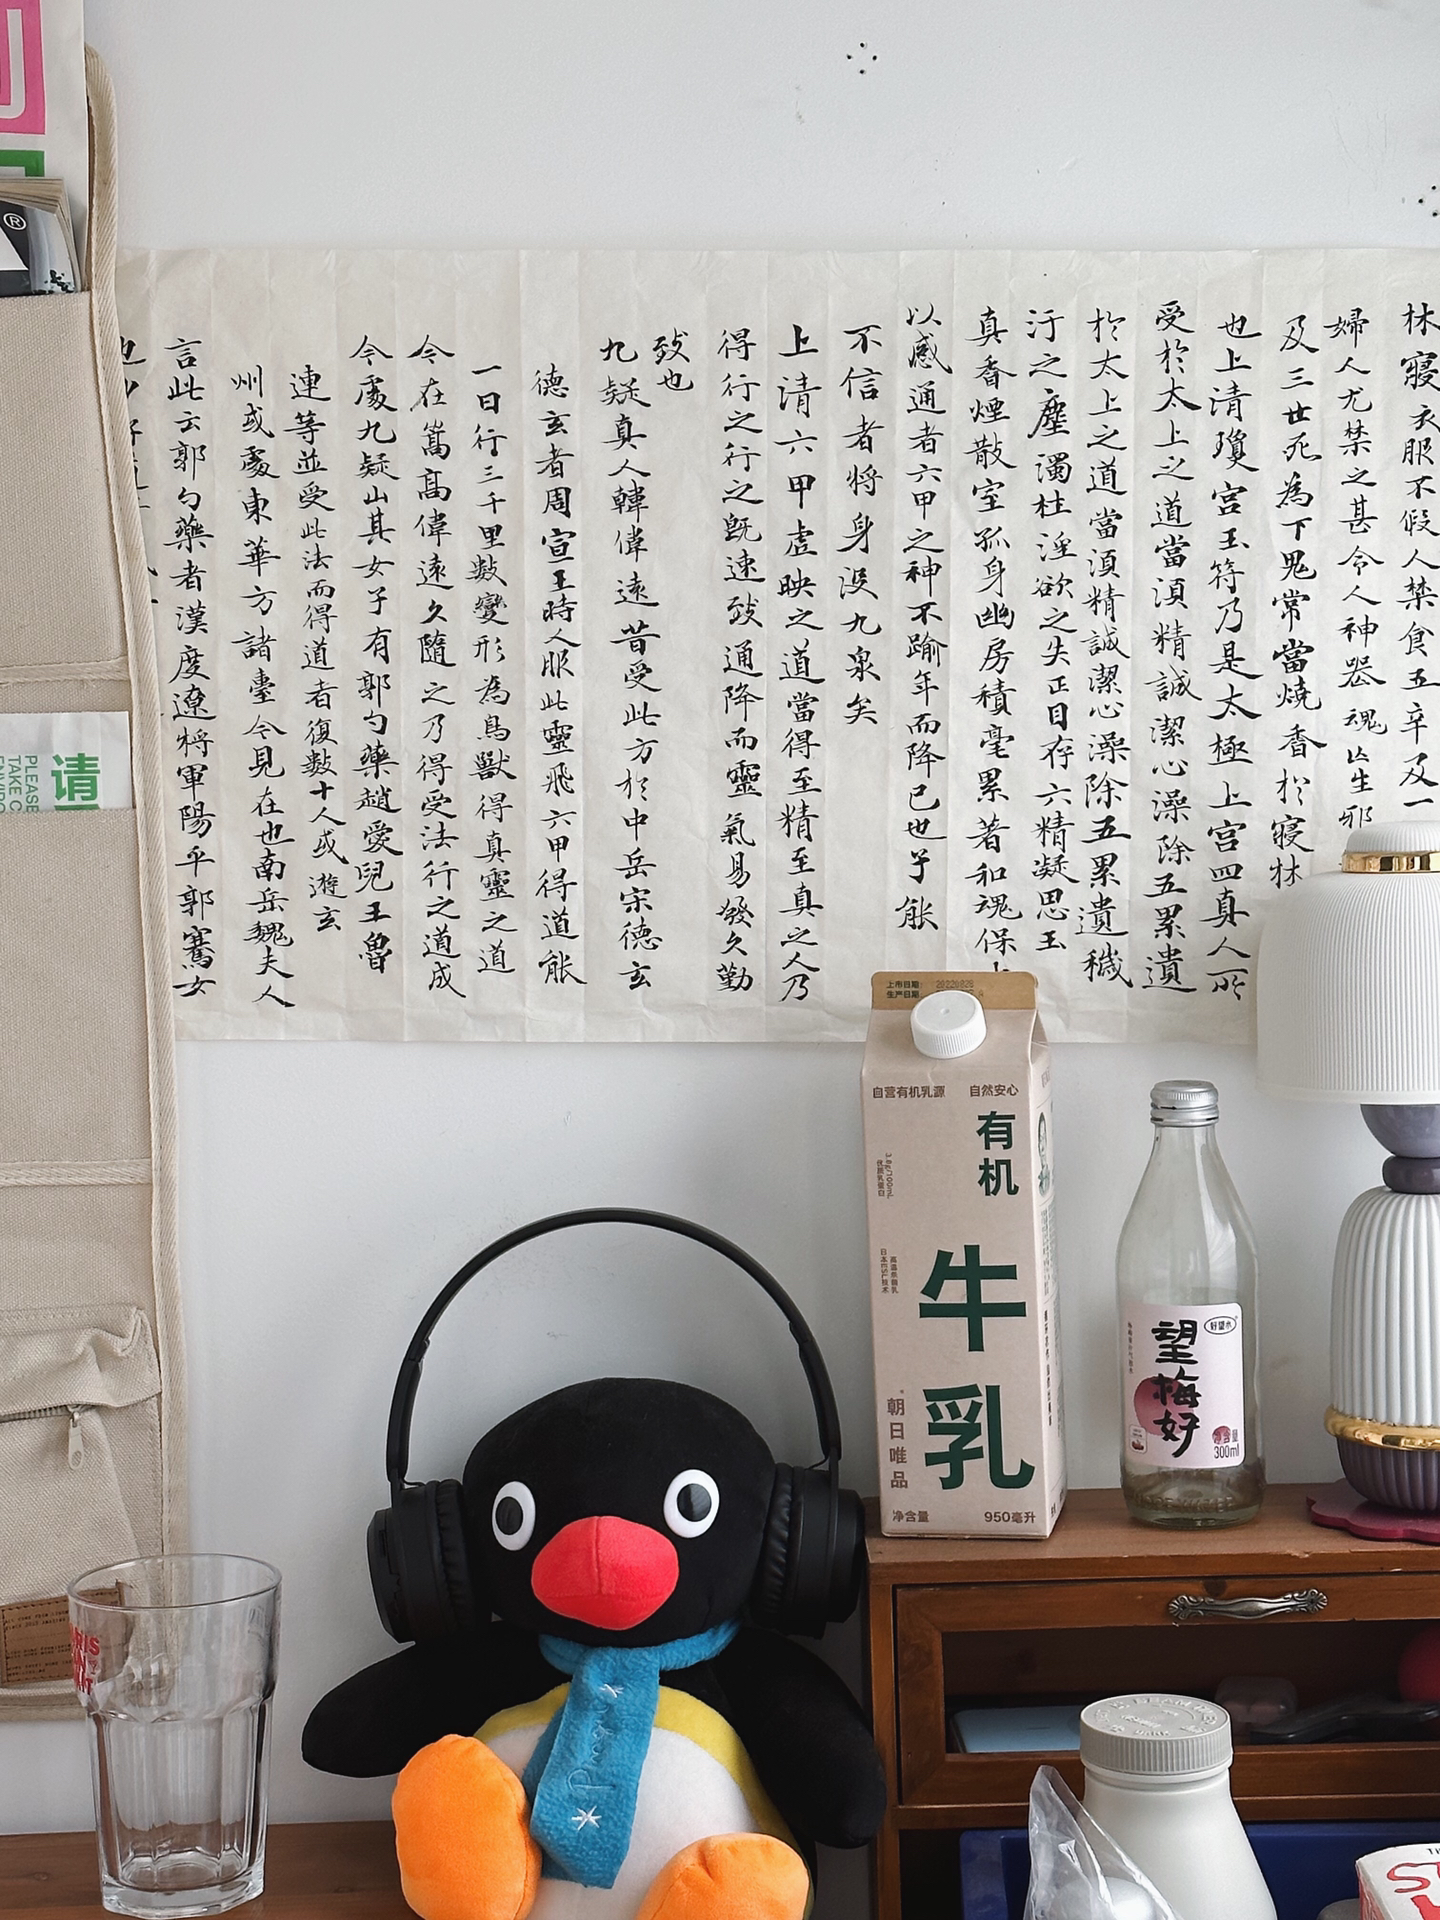 林寢衣服不假人禁食五辛及一
婦人尤禁之甚令人神喪魂亡生邪
及三世死為下鬼常當燒香於寢牀
也上清瓊宮玉符乃是太極上宮四真人所
受於太上之道當須精誠潔心澡除五累遺
於太上之道當須精誠潔心澡除五累遺穢
汙之塵濁杜淫欲之失正目存六精凝思玉
真香煙散室孤身幽房積毫累著和魂保
以感通者六甲之神不踰年而降已也子能
不信者將身沒九泉矣
上清六甲虛映之道當得至精至真之人乃
得行之行之既速致通降而靈氣易發久勤
致也
九疑真人韓偉遠昔受此方於中岳宋德玄
德玄者周宣王時人服此靈飛六甲得道能
一日行三千里數變形為鳥獸得真靈之道
今在嵩高偉遠久隨之乃得受法行之道成
今處九疑山其女子有郭勺藥趙愛兒王魯
連等並受此法而得道者復數十人或遊玄
州或處東華方諸臺今見在也南岳魏夫人
言此云郭勺藥者漢度遼將軍陽平郭騫女
®
请
PLEASE
TAKE C
上市日期:
生产日期:
自营有机乳源
自然安心
有机
3.8g/100mL
优质乳蛋白
牛乳
朝日唯品
净含量
950毫升
好望水
望梅好
净含量
300ml
Pingu